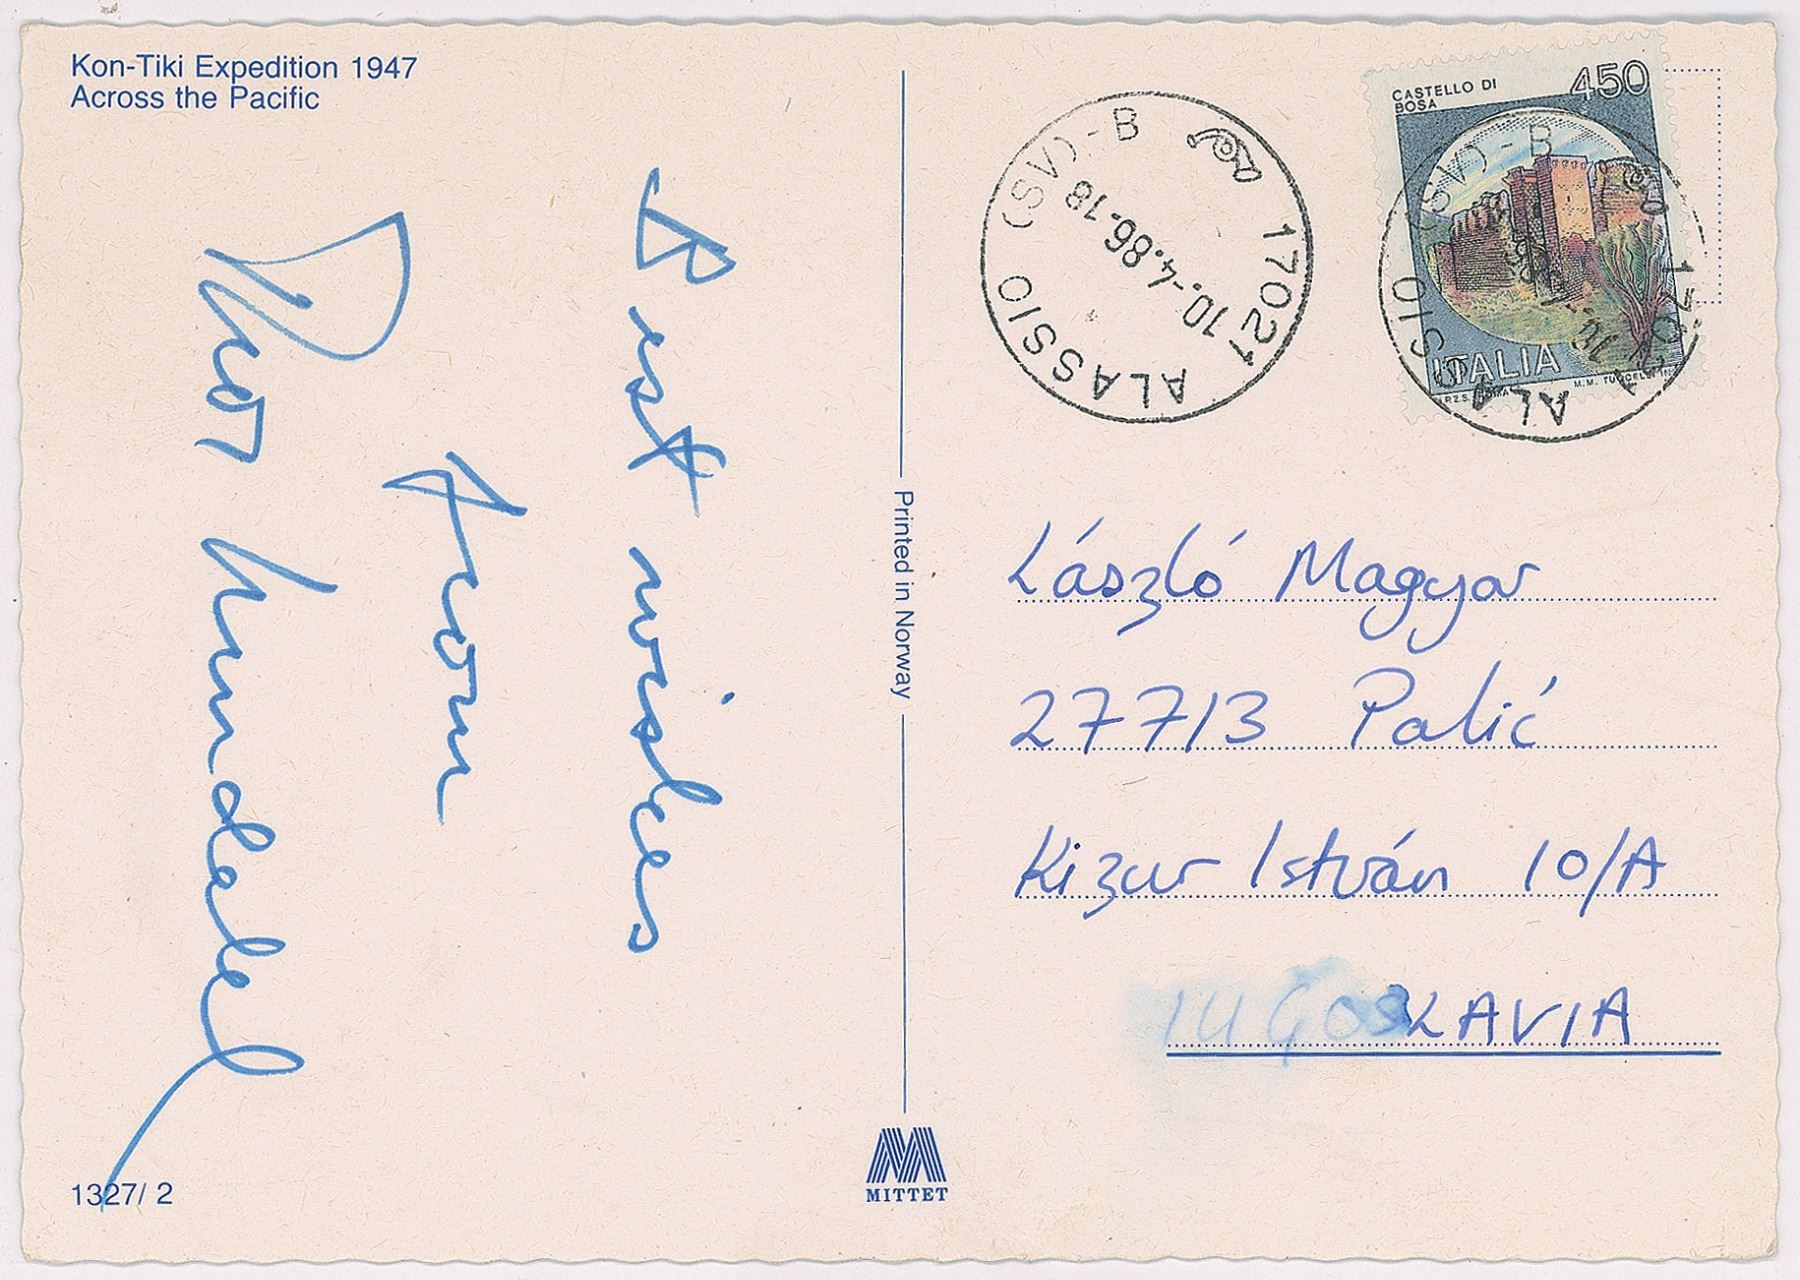 Kon-Tiki Expedition 1947
Across the Pacific
Best wishes
from
Thor Heyerdahl
1327/ 2
Printed in Norway
MITTET
17021 ALASSIO (SV) - B
10.-4.86-18
CASTELLO DI
BOSA
450
ITALIA
I.P.Z.S. ROMA
17021 ALASSIO (SV) - B
László Magyar
27713 Palić
Kizur István 10/A
IUGOSLAVIA